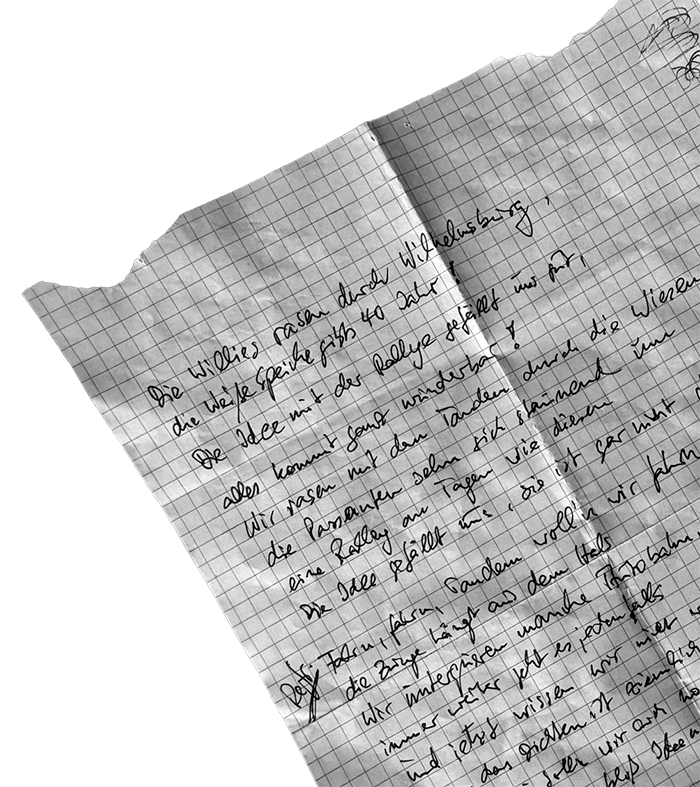 Die Willies rasen durch Wilhelmsburg,
die Weiße Speiche gibts 40 Jahr!
Die Idee mit der Rallye gefällt uns gut,
alles kommt ganz wunderbar!
Wir rasen mit dem Tandem durch die Wiesen
die Passanten sehn sich staunend um
eine Ralley an Tagen wie diesen
Die Idee gefällt uns, sie ist gar nicht
Fahrn, fahrn, Tandem wolln wir fahrn
die Zunge hängt aus dem Hals
Wir unterqueren manche Autobahn,
immer weiter geht es jedenfalls
und jetzt wissen wir nicht
das Dichten ist ziemlich
solln wir auch
bloß Ideen